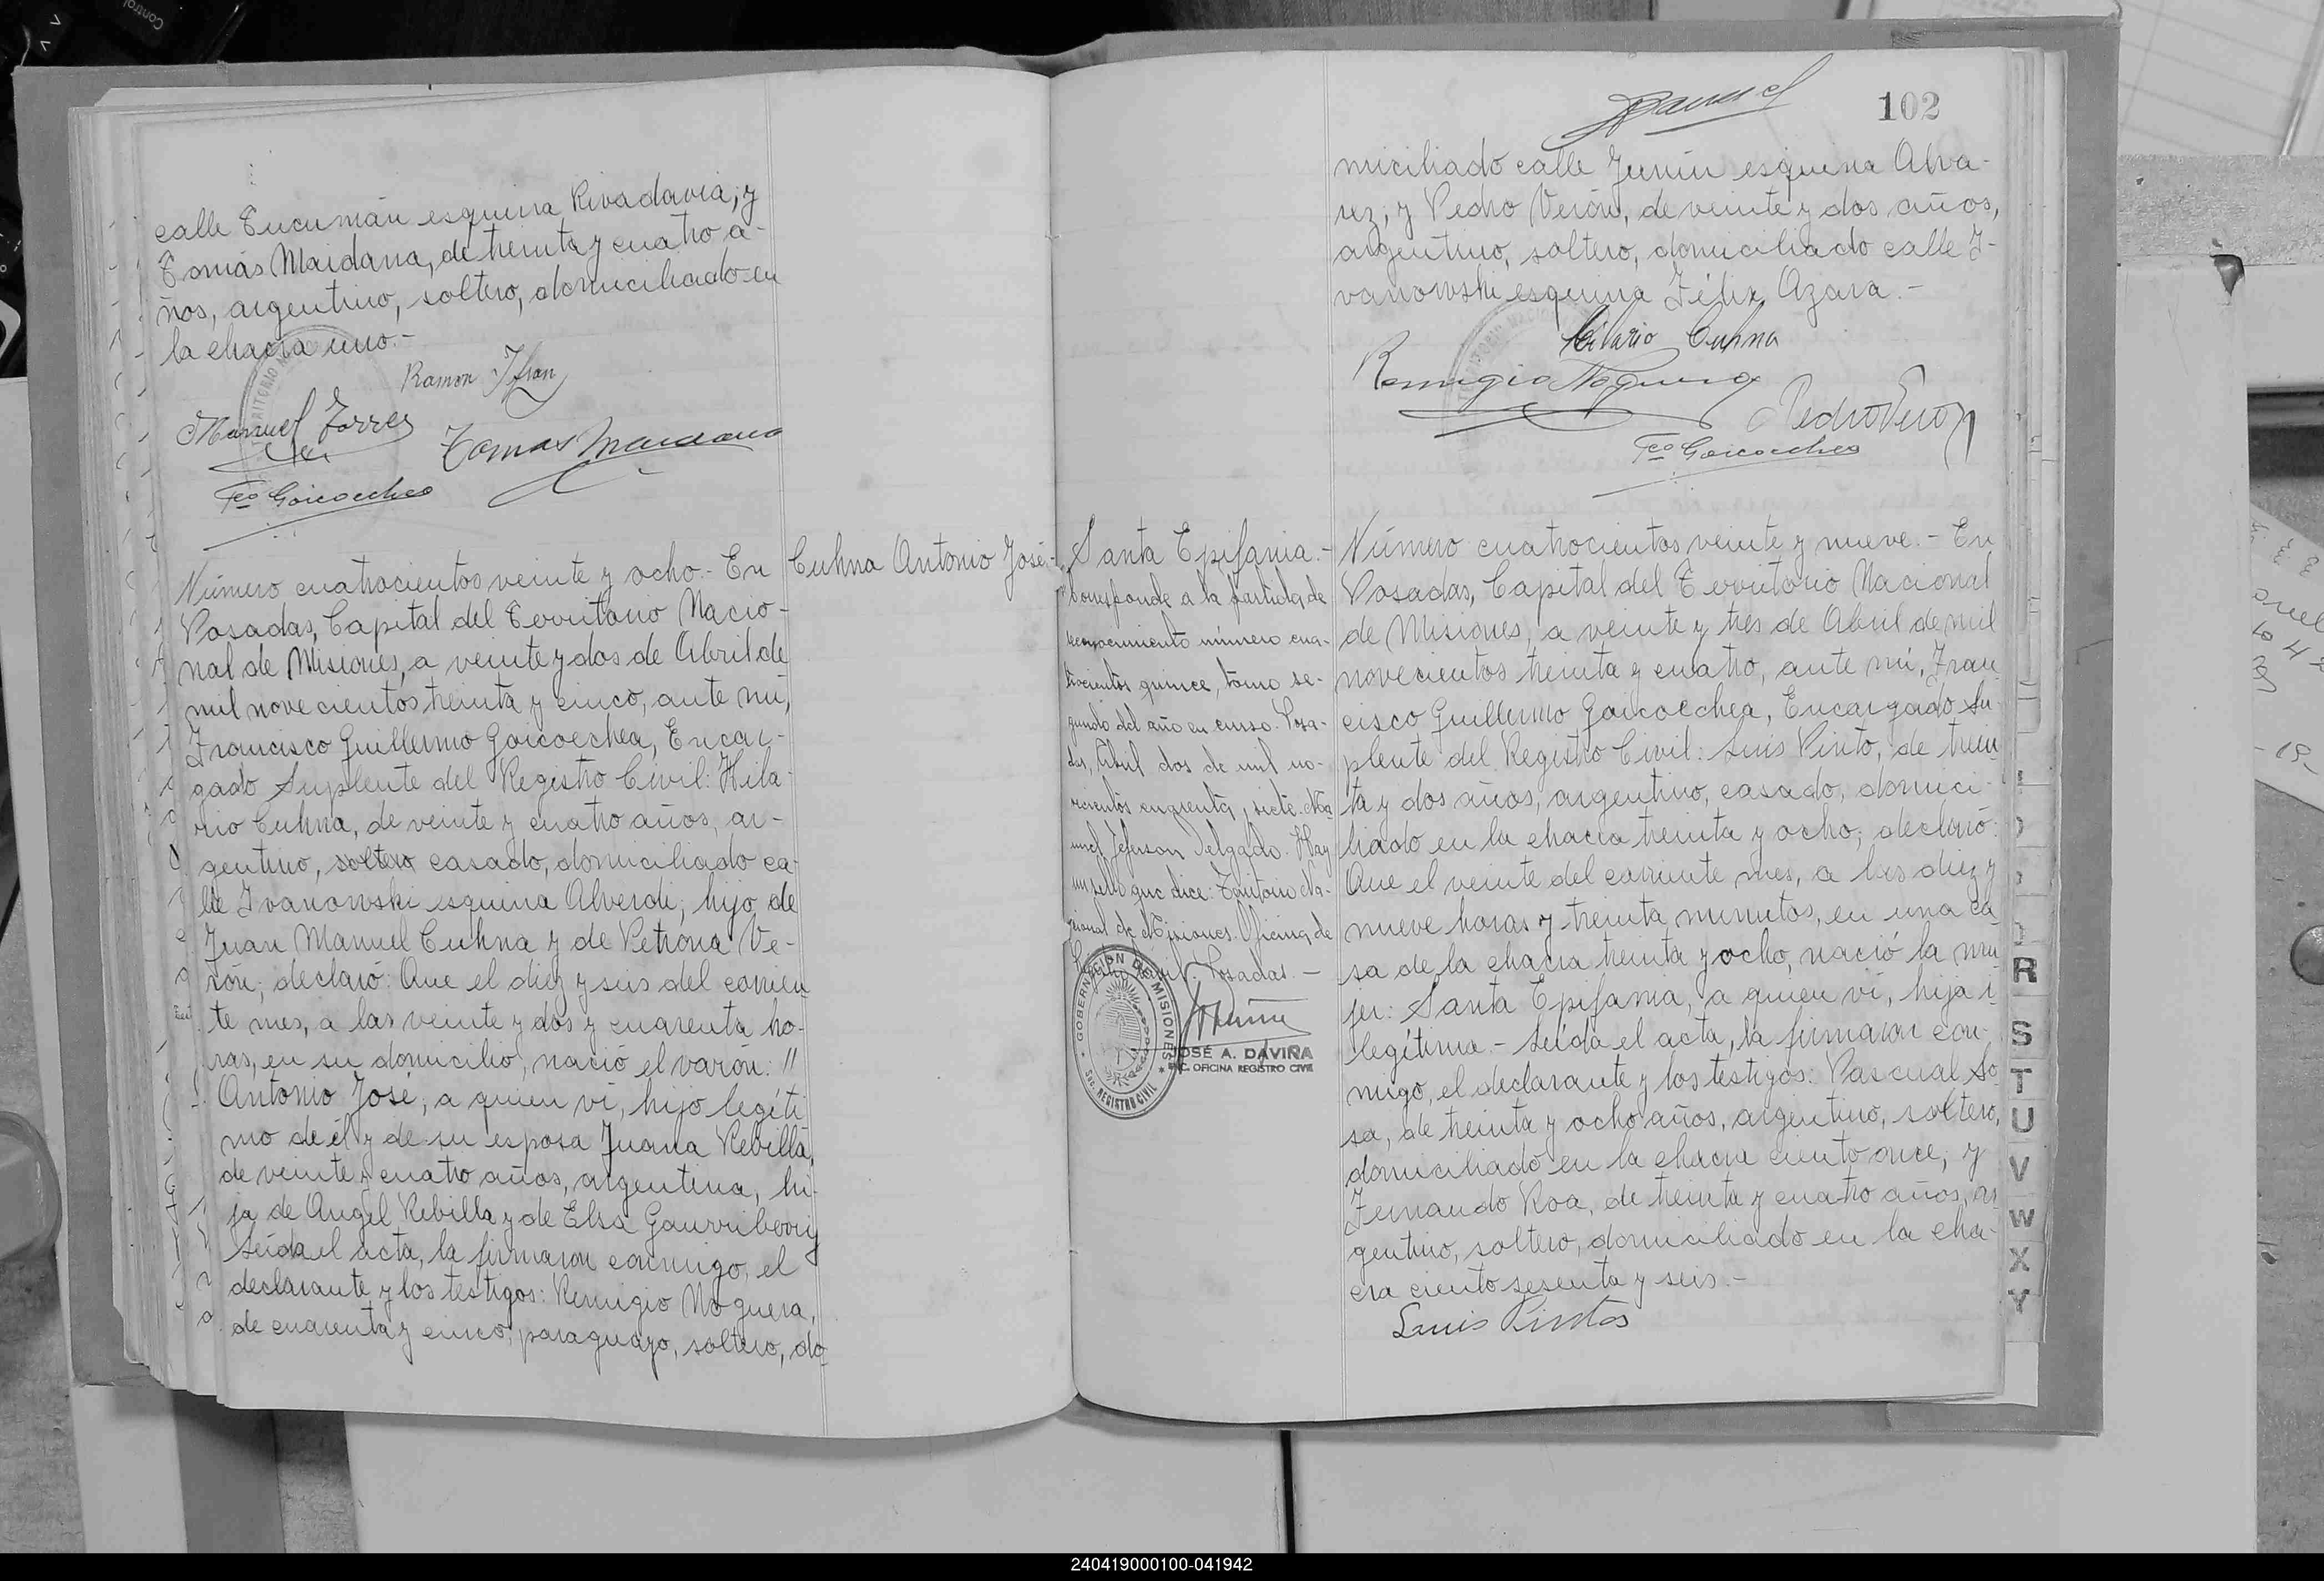 calle Tucumán esquina Rivadavia; y
Tomás Maidana, de treinta y cuatro a-
ños, argentino, soltero, domiciliado en
la chacra uno.-
Ramon
Manuel Torres
Tomas Maidana
Fco Goicoechea
Número cuatrocientos veinte y ocho.- En
Posadas, Capital del Territorio Nacio-
nal de Misiones, a veinte y dos de Abril de
mil novecientos treinta y cinco, ante mí,
Francisco Guillermo Goicoechea, Encar-
gado Suplente del Registro Civil: Hila-
rio Cuhna, de veinte y cuatro años, ar-
gentino, soltero casado, domiciliado ca-
lle Ivanowski esquina Alverdi; hijo de
Juan Manuel Cuhna y de Petrona Ve-
rón; declaró: Que el diez y seis del corrien
te mes, a las veinte y dos y cuarenta ho-
ras, en su domicilio, nació el varón: "
Antonio José, a quien ví, hijo legíti
mo de él y de su esposa Juana Rebilla,
de veinte y cuatro años, argentina, hi-
ja de Angel Rebilla y de Elsa Gaurriberry
Leída el acta, la firmaron conmigo, el
declarante y los testigos: Remigio Noguera,
de cuarenta y cinco, paraguayo, soltero, do
Cuhna Antonio José-
102
miciliado calle Junín esquina Alva-
rez; y Pedro Verón, de veinte y dos años,
argentino, soltero, domiciliado calle I-
vanowski esquina Félix Azara.-
Hilario Cuhna
Remigio Noguera
Pedro Veron
Fco Goicoechea
Santa Epifania.-
Corresponde a la partida de
reconocimiento número cua-
trocientos quince, tomo se-
gundo del año en curso. Posa-
das, Abril dos de mil no-
vecientos cuarenta y siete. Ma
nuel Jeferson Delgado. Hay
un sello que dice: Territorio Na-
cional de Misiones. Oficina de
Registro Civil. Posadas.-
GOBERNACIÓN DE MISIONES
SUC. REGISTRO CIVIL
JOSÉ A. DAVIÑA
ENC. OFICINA REGISTRO CIVIL
Número cuatrocientos veinte y nueve.- En
Posadas, Capital del Territorio Nacional
de Misiones, a veinte y tres de Abril de mil
novecientos treinta y cuatro, ante mí, Fran
cisco Guillermo Goicoechea, Encargado Su-
plente del Registro Civil: Luis Pinto, de trein
ta y dos años, argentino, casado, domici-
liado en la chacra treinta y ocho; declaró:
Que el veinte del corriente mes, a las diez y
nueve horas y treinta minutos, en una ca
sa de la chacra treinta y ocho, nació la mu
jer: Santa Epifania, a quien ví, hija i-
legítima.- Leída el acta, la firmaron con-
migo, el declarante y los testigos: Pascual So
sa, de treinta y ocho años, argentino, soltero,
domiciliado en la chacra ciento once; y
Fernando Roa, de treinta y cuatro años, ar
gentino, soltero, domiciliado en la cha-
cra ciento sesenta y seis.-
Luis Pintos
R
S
T
U
V
W
X
Y
240419000100-041942